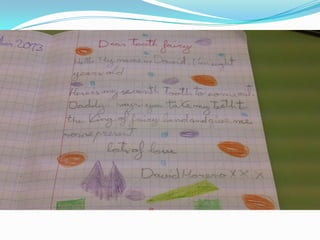 2013
Dear tooth fairy
Hello! My name is David. I'm eight
years old
Here is my seventh tooth to come out.
Daddy says you take my teeth to
the King of fairy land and give me
some present
lots of love
David Moreno x x x